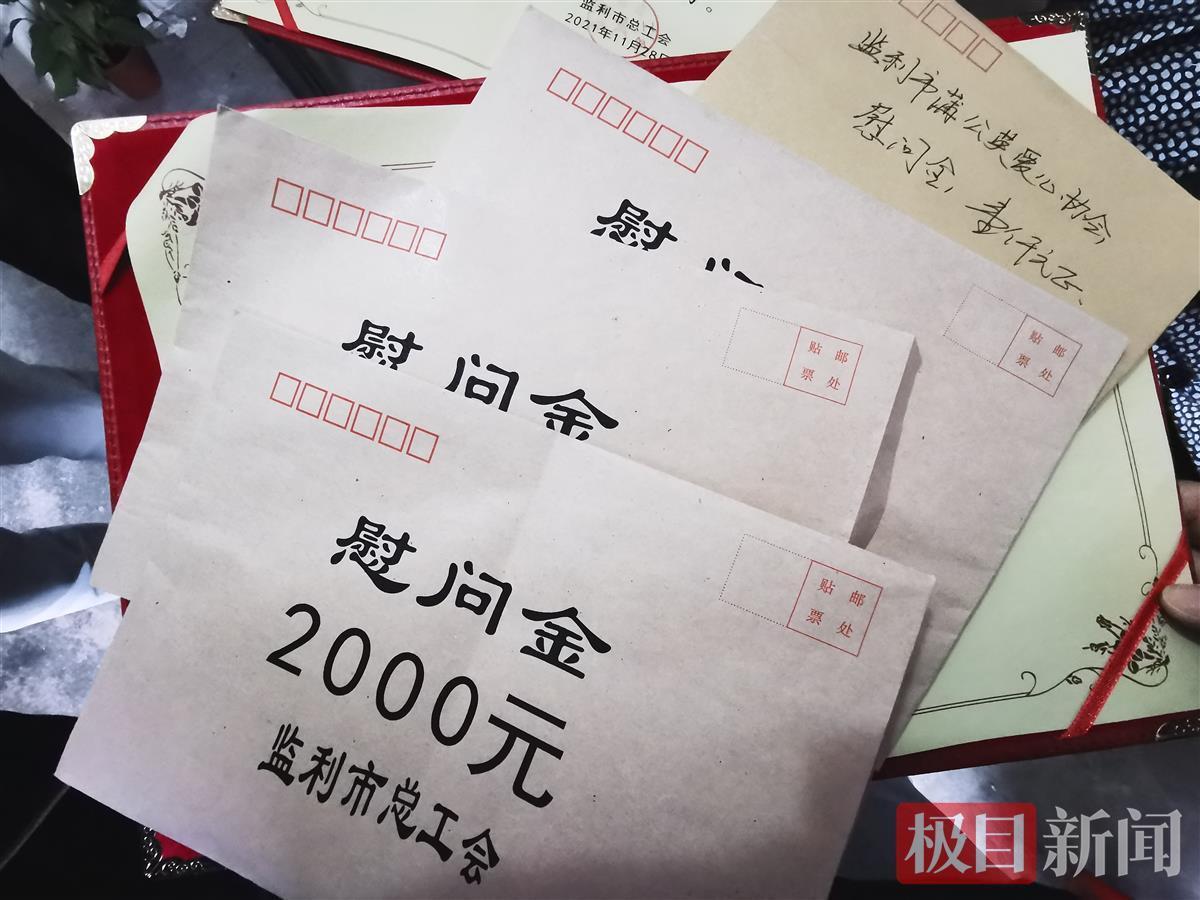 监利市总工会
2021年11月28日
监利市蒲公英爱心协会
慰问金，壹仟元正、
慰
贴 邮
票 处
慰问金
贴 邮
票 处
慰问金
2000元
监利市总工会
贴 邮
票 处
极目新闻